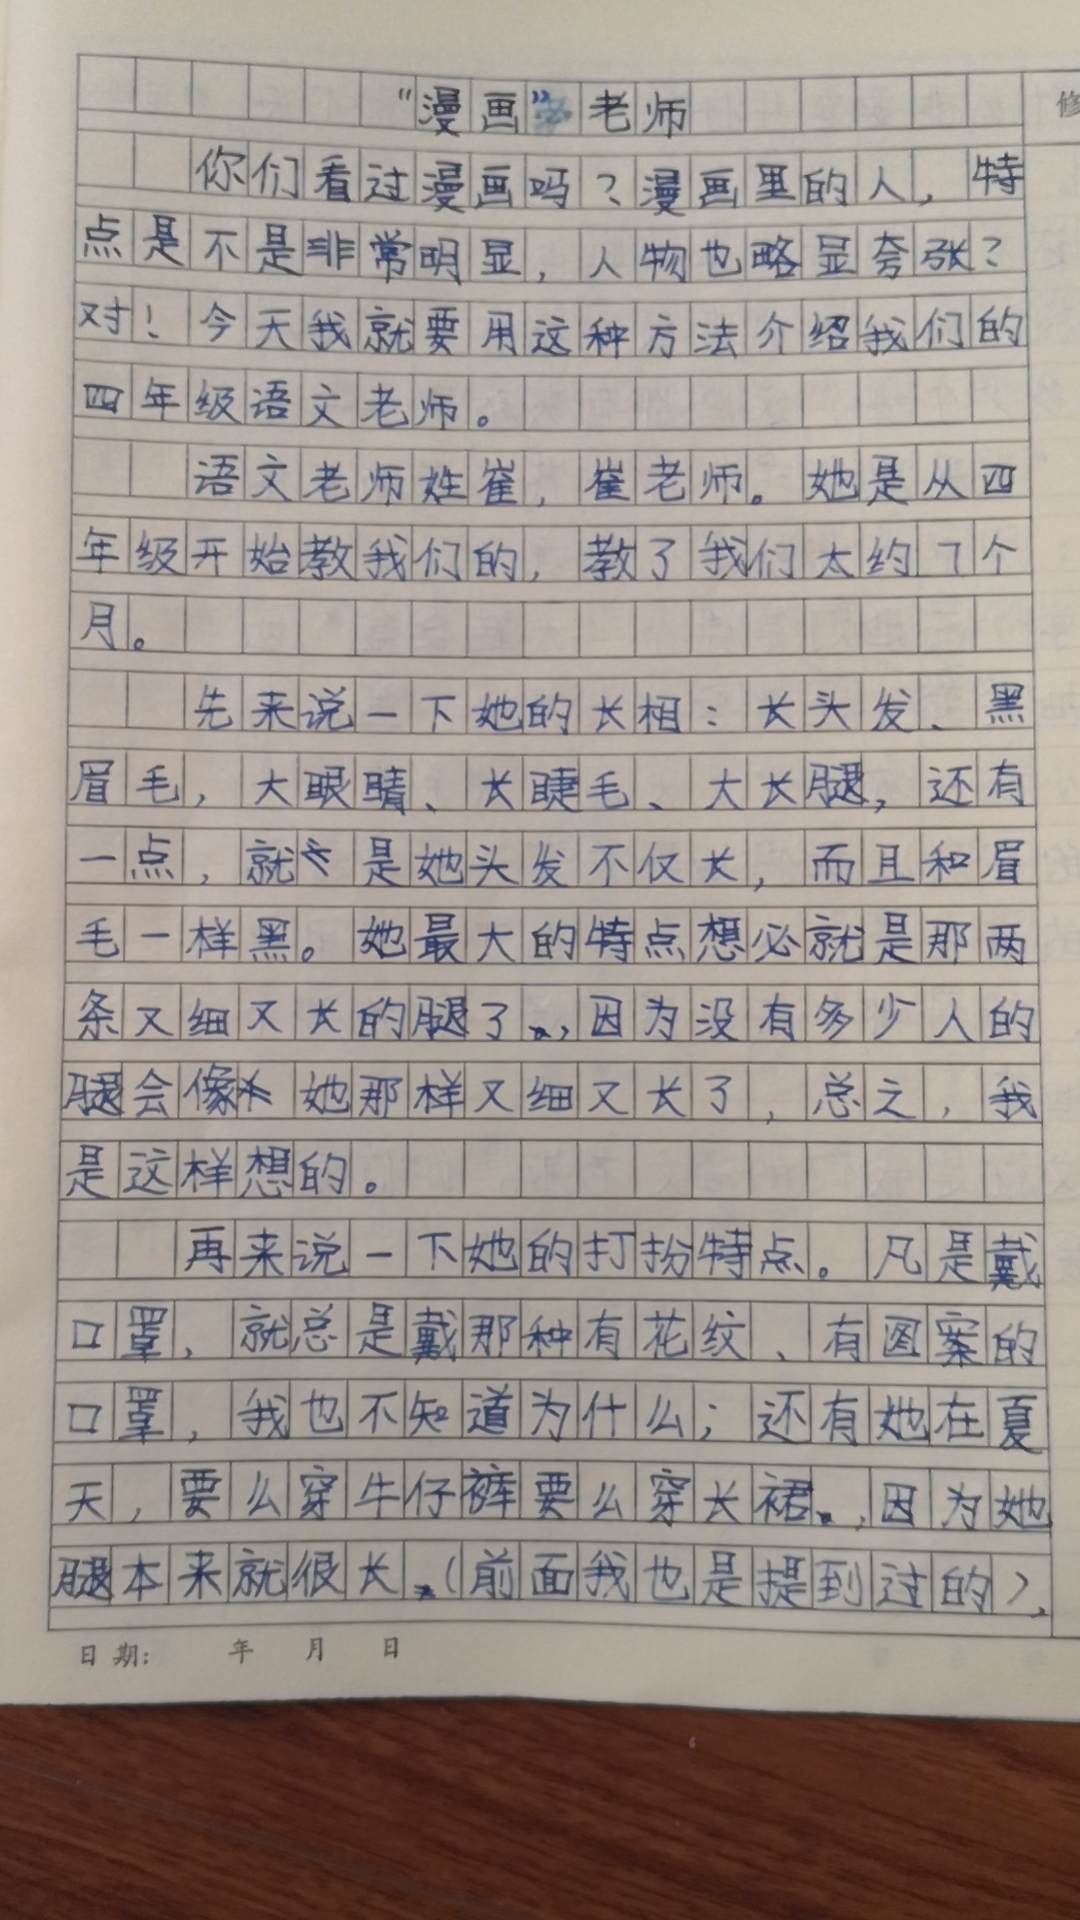 “漫画”老师
你们看过漫画吗？漫画里的人，特
点是不是非常明显，人物也略显夸张？
对！今天我就要用这种方法介绍我们的
四年级语文老师。
语文老师姓崔，崔老师。她是从四
年级开始教我们的，教了我们大约7个
月。
先来说一下她的长相：长头发、黑
眉毛，大眼睛、长睫毛、大长腿，还有
一点，就是她头发不仅长，而且和眉
毛一样黑。她最大的特点想必就是那两
条又细又长的腿了，因为没有多少人的
腿会像她那样又细又长了，总之，我
是这样想的。
再来说一下她的打扮特点。凡是戴
口罩，就总是戴那种有花纹、有图案的
口罩，我也不知道为什么；还有她在夏
天，要么穿牛仔裤要么穿长裙，因为她
腿本来就很长（前面我也是提到过的），
日期： 年 月 日
修